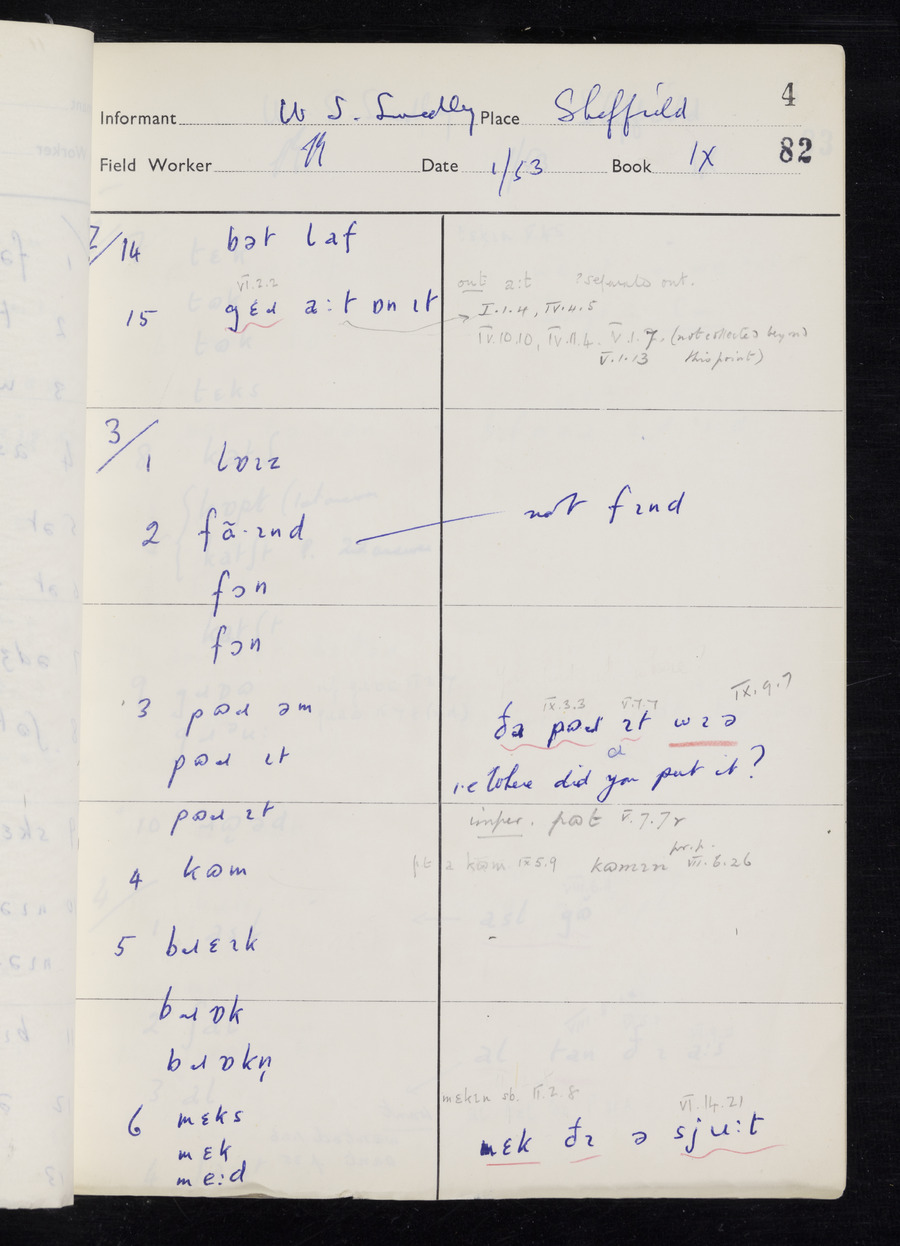 4
Informant W S. Smedley Place Sheffield
82
Field Worker Date 1/53 Book IX
2/14 bət laf
15 gɛɹ a:t ɒn ɪt
VI.2.2
out a:t ?separate out.
I.1.4, IV.4.5
IV.10.10, IV.11.4. V.1.7. (not collected beyond
V.1.13 this point)
3/1 lɒɪz
2 fã·ɪnd
not fɪnd
fɔn
fɔn
3 pɷɹ əm
IX.3.3 V.7.7 IX.9.7
ða pɷɹ ɪt wɪə
pɷɹ ɪt
i.e Where did you put it?
pɷɹ ɪt
imper. pɷt V.7.7r
4 kɷm
pt a kɷm IX.5.9 kɷmɪn pr.p. VI.6.26
5 bɹɛɪk
bɹɒk
bɹɒkn̩
6 mɛks
mɛkɪn sb. II.2.8
VI.14.21
mɛk
mɛk ðɪ ə sju:t
me:d